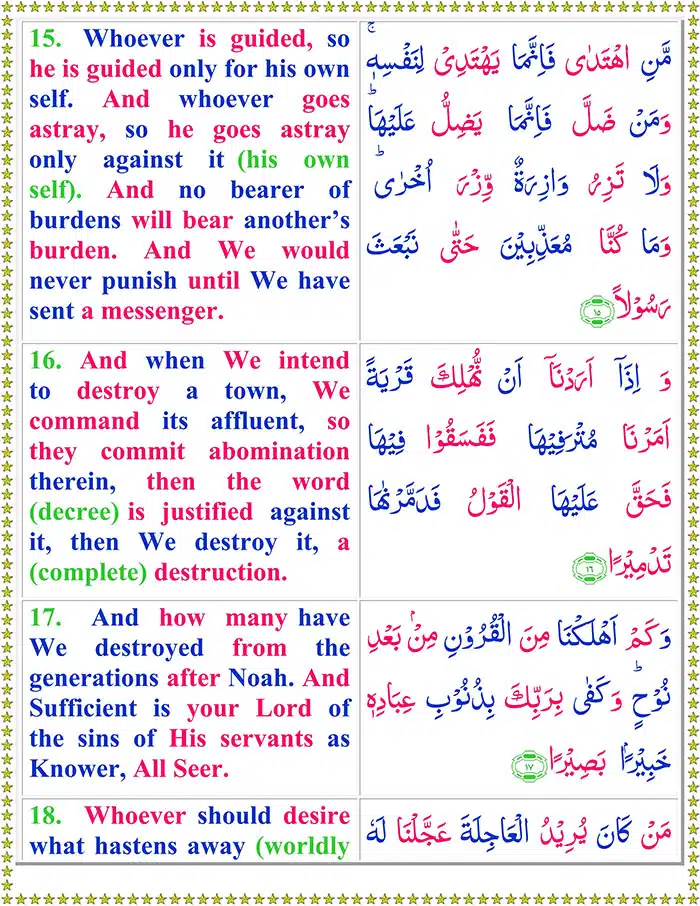 15. Whoever is guided, so
he is guided only for his own
self. And whoever goes
astray, so he goes astray
only against it (his own
self). And no bearer of
burdens will bear another’s
burden. And We would
never punish until We have
sent a messenger.
مَّنِ اهْتَدٰى فَاِنَّمَا يَهْتَدِىْ لِنَفْسِهٖ ۚ
وَمَنْ ضَلَّ فَاِنَّمَا يَضِلُّ عَلَيْهَا ؕ
وَلَا تَزِرُ وَازِرَةٌ وِّزْرَ اُخْرٰى ؕ
وَمَا كُنَّا مُعَذِّبِيْنَ حَتّٰى نَبْعَثَ
رَسُوْلاً ۱۵
16. And when We intend
to destroy a town, We
command its affluent, so
they commit abomination
therein, then the word
(decree) is justified against
it, then We destroy it, a
(complete) destruction.
وَ اِذَاۤ اَرَدْنَاۤ اَنْ نُّهْلِكَ قَرْيَةً
اَمَرْنَا مُتْرَفِيْهَا فَفَسَقُوْا فِيْهَا
فَحَقَّ عَلَيْهَا الْقَوْلُ فَدَمَّرْنٰهَا
تَدْمِيْرًا ۱۶
17. And how many have
We destroyed from the
generations after Noah. And
Sufficient is your Lord of
the sins of His servants as
Knower, All Seer.
وَكَمْ اَهْلَكْنَا مِنَ الْقُرُوْنِ مِنْۢ بَعْدِ
نُوْحٍ ؕ وَكَفٰى بِرَبِّكَ بِذُنُوْبِ عِبَادِهٖ
خَبِيْرًۢا بَصِيْرًا ۱۷
18. Whoever should desire
what hastens away (worldly
مَنْ كَانَ يُرِيْدُ الْعَاجِلَةَ عَجَّلْنَا لَهٗ